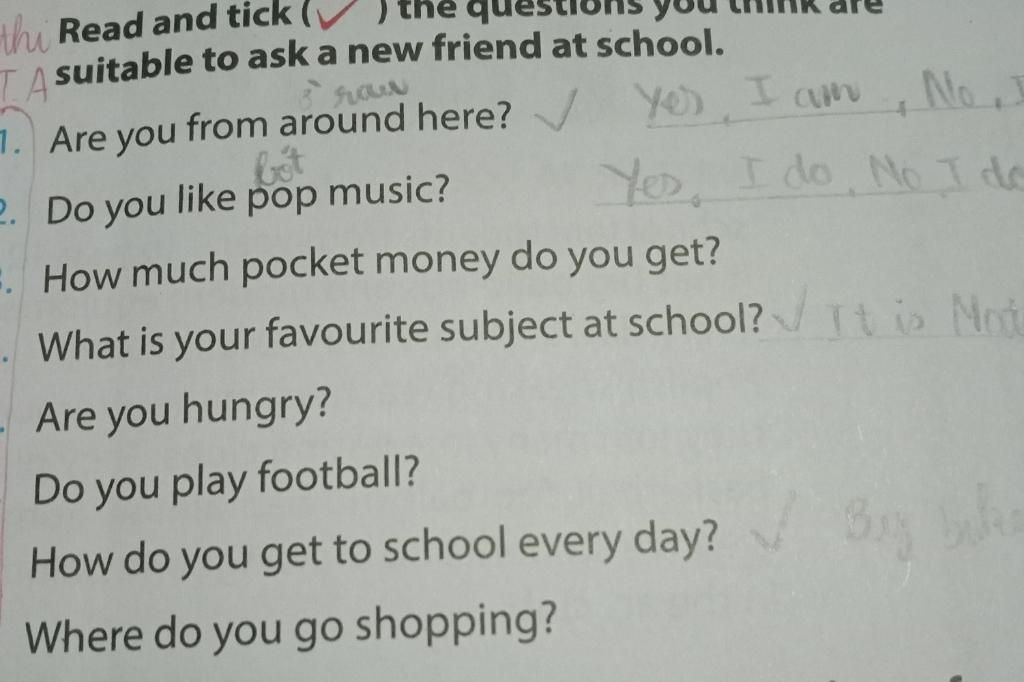 Read and tick (✓) the questions you think are
suitable to ask a new friend at school.
1. Are you from around here? ✓ Yes, I am, No, I
2. Do you like pop music? Yes, I do, No I do
How much pocket money do you get?
What is your favourite subject at school? ✓ It is
Are you hungry?
Do you play football?
How do you get to school every day? ✓ By
Where do you go shopping?